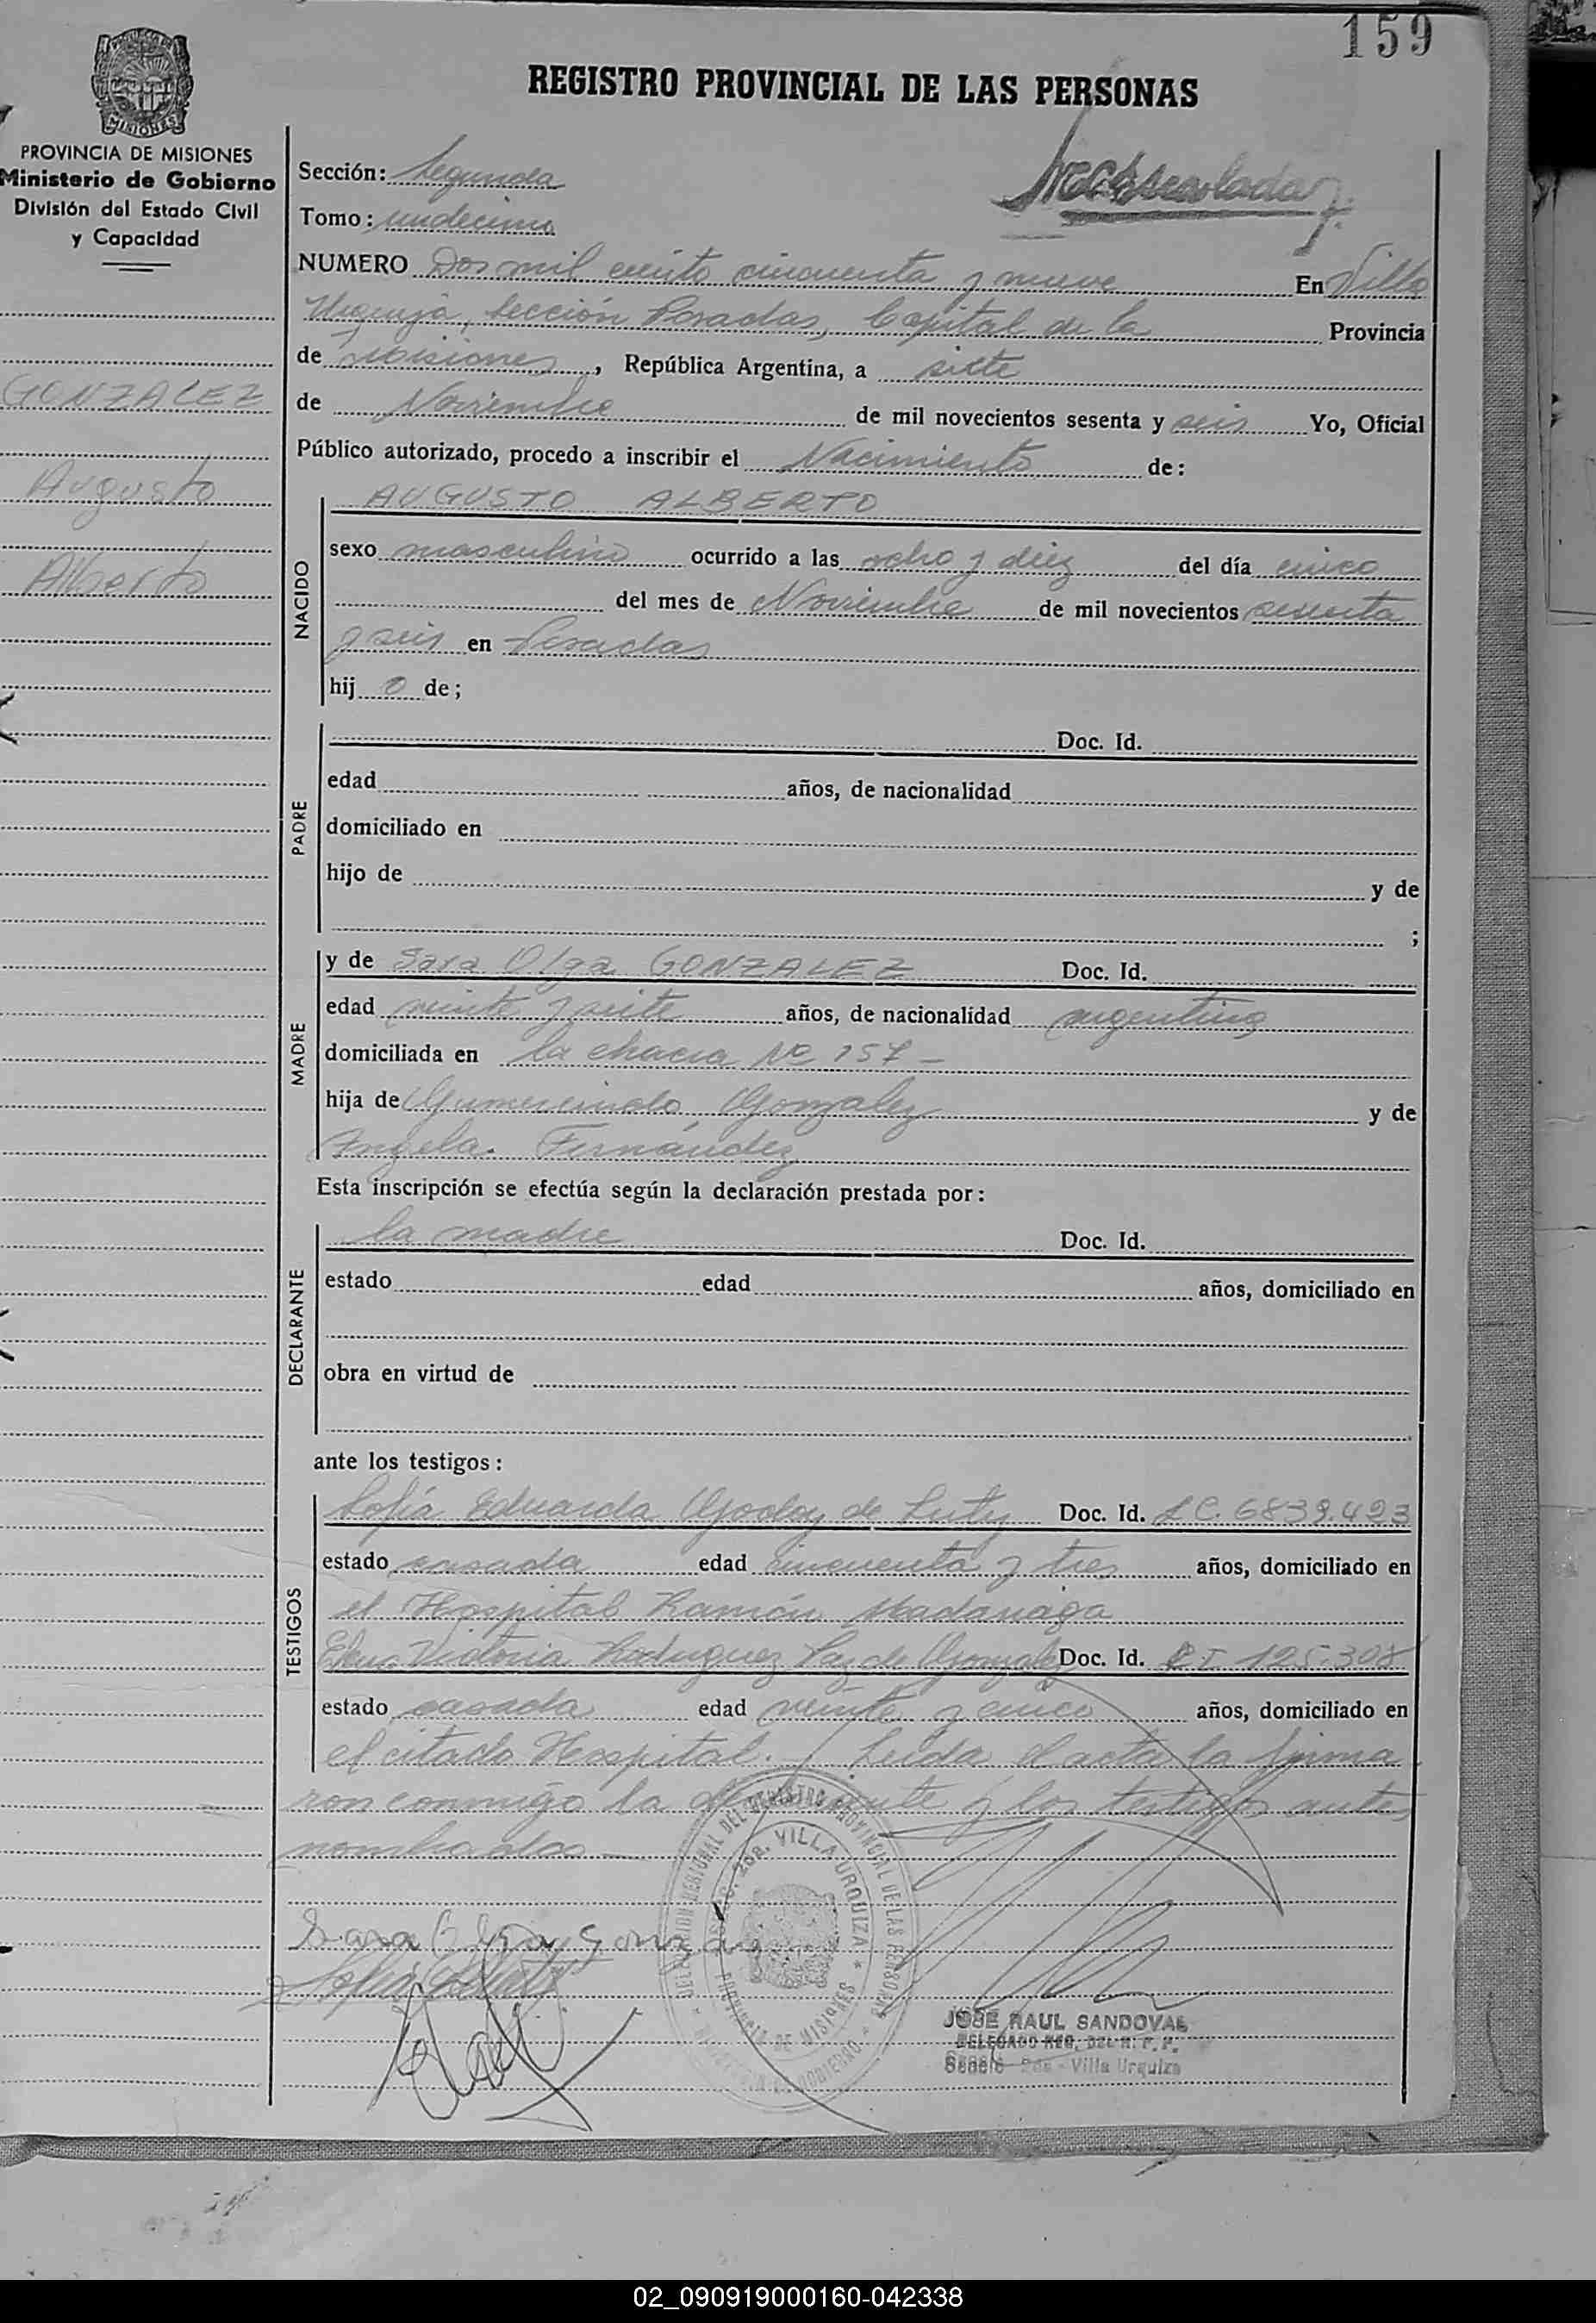 159
REGISTRO PROVINCIAL DE LAS PERSONAS
MISIONES
PROVINCIA DE MISIONES
Ministerio de Gobierno
División del Estado Civil
y Capacidad
GONZALEZ
Augusto
Alberto
Sección: Segunda
Tomo: undecimo
NUMERO Dos mil ciento cincuenta y nueve En Villa
Urquiza, Sección Posadas, Capital de la Provincia
de Misiones, República Argentina, a siete
de Noviembre de mil novecientos sesenta y seis Yo, Oficial
Público autorizado, procedo a inscribir el Nacimiento de:
NACIDO
AUGUSTO ALBERTO
sexo masculino ocurrido a las ocho y diez del día cinco
del mes de Noviembre de mil novecientos sesenta
y seis en Posadas
hij o de;
PADRE
Doc. Id.
edad años, de nacionalidad
domiciliado en
hijo de y de
;
MADRE
y de Sara Olga GONZALEZ Doc. Id.
edad veinte y siete años, de nacionalidad argentina
domiciliada en la chacra No 157 -
hija de Gumercindo Gonzalez y de
Angela Fernández
Esta inscripción se efectúa según la declaración prestada por:
DECLARANTE
la madre Doc. Id.
estado edad años, domiciliado en
obra en virtud de
ante los testigos:
TESTIGOS
Sofía Eduarda Godoy de Doc. Id. LC. 6839.423
estado casada edad cincuenta y tres años, domiciliado en
el Hospital Ramón Madariaga
Victoria Rodriguez Paz de Gonzalez Doc. Id. C.I. 125.308
estado casada edad veinte y cinco años, domiciliado en
el citado Hospital. Leida el acta la firma
ron conmigo la y los testigos ante
nombrados
Sara Olga Gonzalez
DELEGACION REGIONAL DEL REGISTRO PROVINCIAL DE LAS PERSONAS
SECC. 2da. VILLA URQUIZA
PROVINCIA DE MISIONES
MINISTERIO DE GOBIERNO
JOSE RAUL SANDOVAL
DELEGADO REG. DEL R. P. P.
2da - Villa Urquiza
02_090919000160-042338